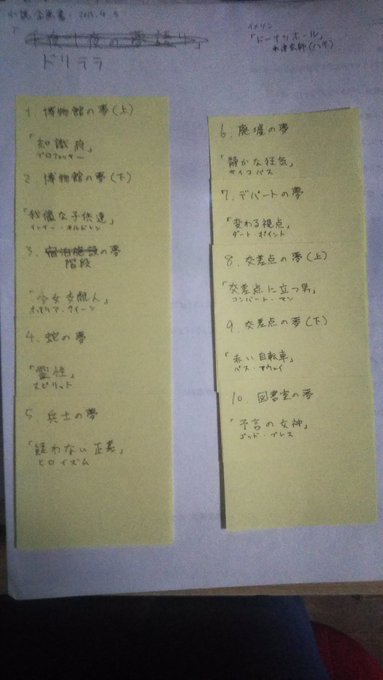 小説企画書・2015.4.5
「十夜十夜の夢語り」
ドリテラ
イメソン
「ドーナツホール」
米津玄師(ハチ)
1. 博物館の夢(上)
「知識欲」
プロフェッサー
2. 博物館の夢(下)
「我儘な子供達」
インナー・チルドレン
3. 宿泊施設の夢
階段
「少女支配人」
4. 蛇の夢
「霊性」
スピリット
5 兵士の夢
「疑わない正義」
ヒロイズム
6. 廃墟の夢
「静かな狂気」
サイコパス
7. デパートの夢
「変わる視点」
ダート ポイント
8. 交差点の夢(上)
「交差点に立つ男」
コンバート・マン
9. 交差点の夢(下)
「赤い自転車」
パス・アウェイ
10. 図書室の夢
「予言の女神」
ゴッド・ブレス